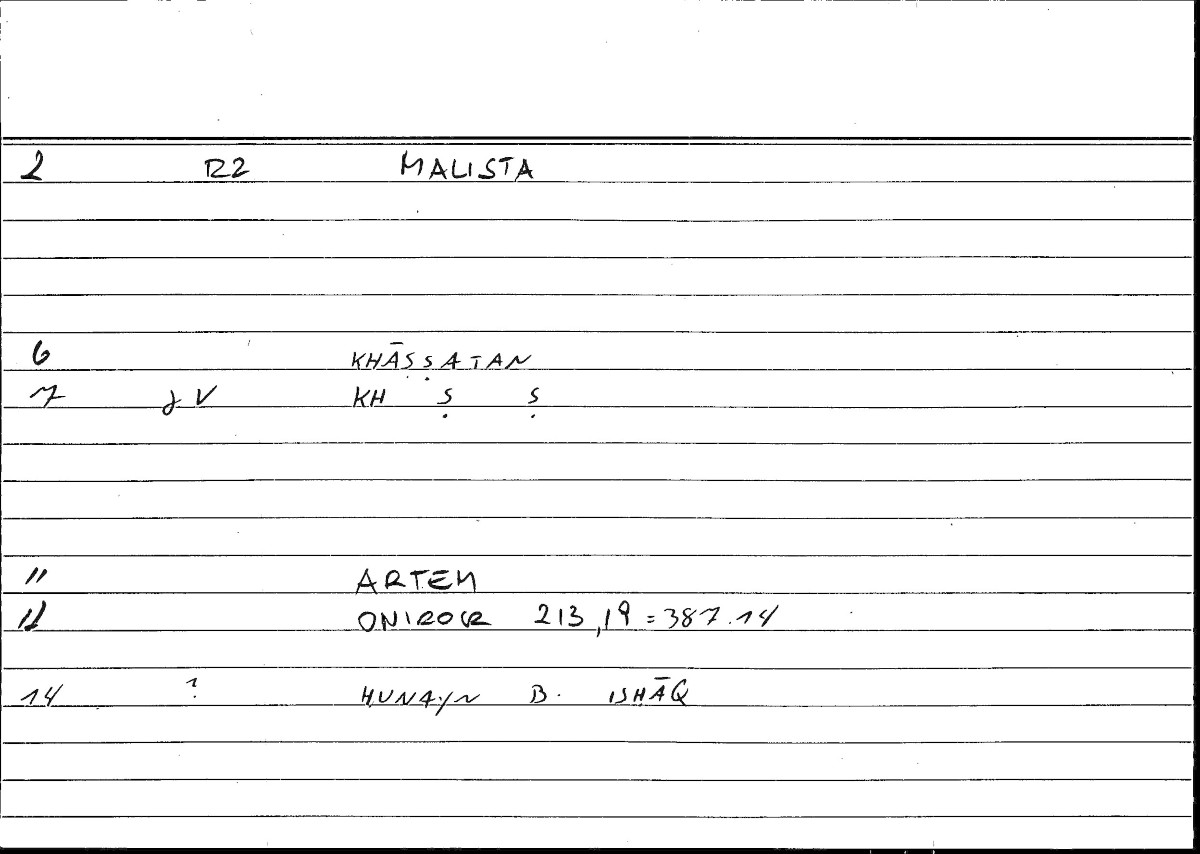 2 R2 MALISTA
6 KHĀṢṢATAN
7 jV KH Ṣ Ṣ
11 ARTEM
12 ONIROCR 213,19 = 387.14
14 ? HUNAYN B. ISHĀQ